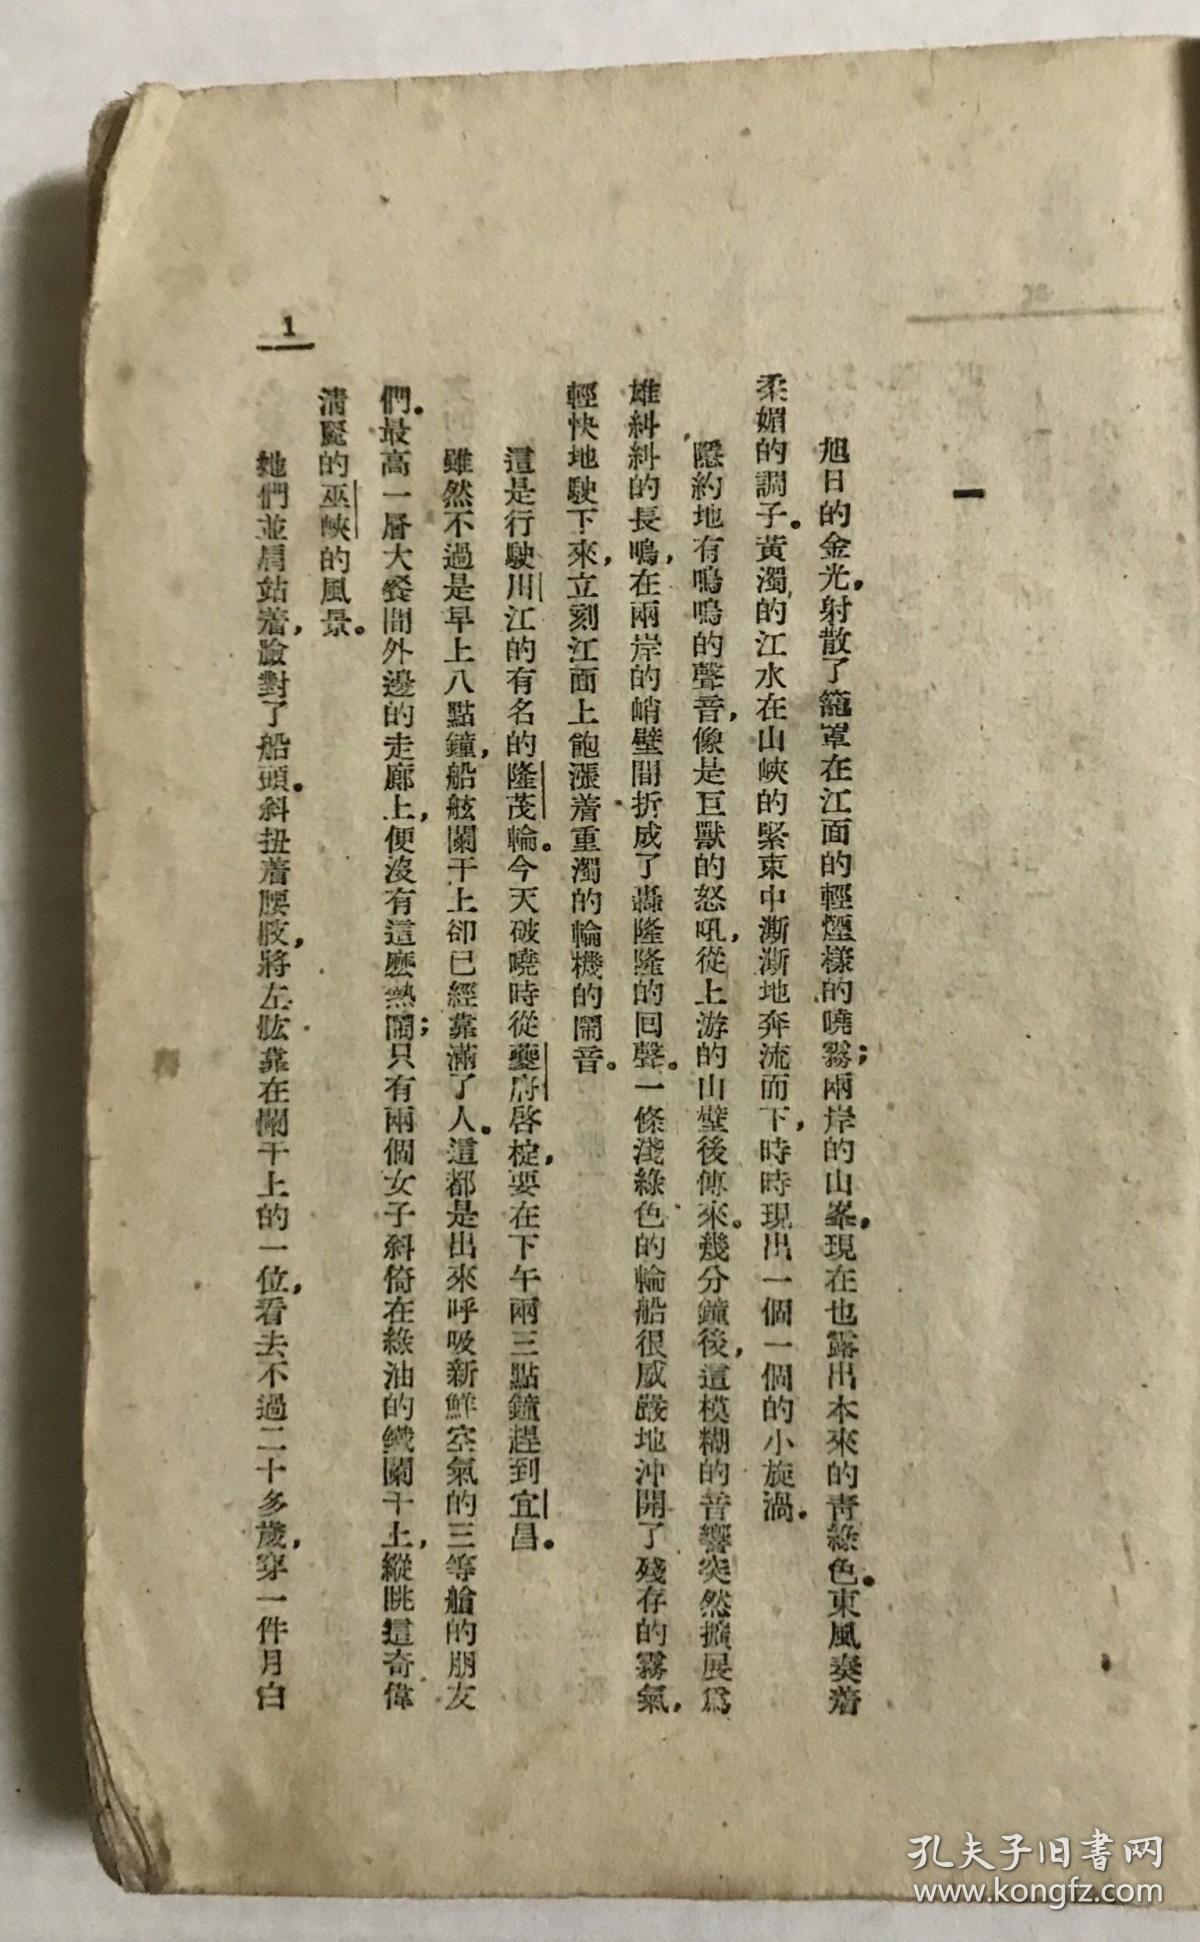 一
旭日的金光，射散了籠罩在江面的輕煙樣的曉霧；兩岸的山峯，現在也露出本來的青綠色。東風奏着
柔媚的調子。黃濁的江水在山峽的緊束中澌澌地奔流而下，時時現出一個一個的小旋渦。
隱約地有嗚嗚的聲音，像是巨獸的怒吼，從上游的山壁後傳來。幾分鐘後，這模糊的音響突然擴展爲
雄糾糾的長鳴，在兩岸的峭壁間折成了轟隆隆的回聲。一條淺綠色的輪船很威嚴地沖開了殘存的霧氣，
輕快地駛下來，立刻江面上飽漲着重濁的輪機的鬧音。
這是行駛川江的有名的隆茂輪。今天破曉時從夔府啓椗，要在下午兩三點鐘趕到宜昌。
雖然不過是早上八點鐘，船舷闌干上卻已經靠滿了人。這都是出來呼吸新鮮空氣的三等艙的朋友
們。最高一層大餐間外邊的走廊上，便沒有這麼熱鬧；只有兩個女子斜倚在綠油的鐵闌干上，縱眺這奇偉
清麗的巫峽的風景。
她們並肩站着，臉對了船頭。斜扭着腰肢，將左肱靠在闌干上的一位，看去不過二十多歲，穿一件月白
1
孔夫子旧书网
www.kongfz.com